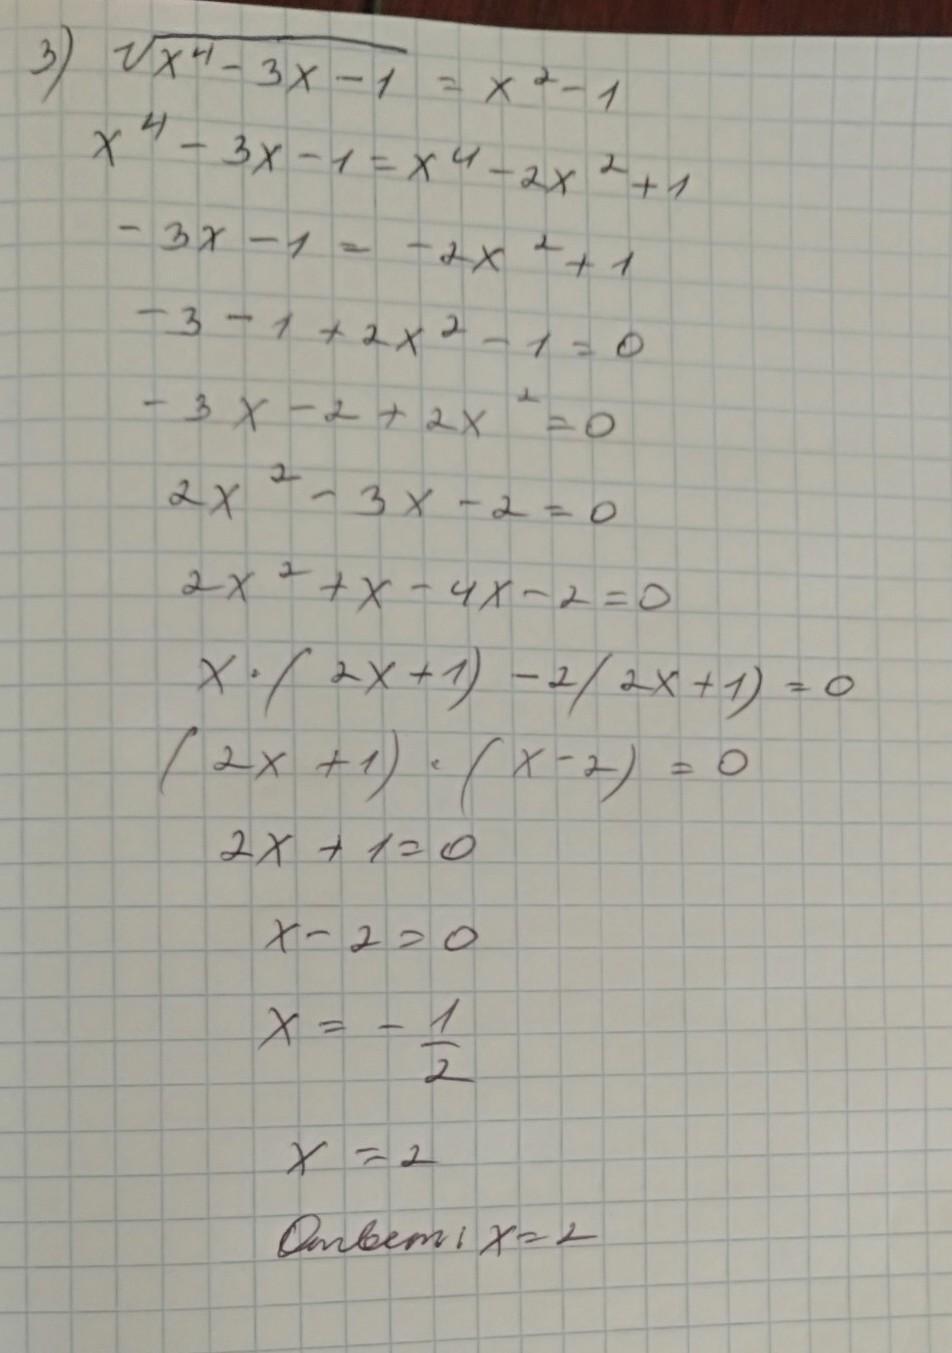 3) √(x⁴ - 3x - 1) = x² - 1
x⁴ - 3x - 1 = x⁴ - 2x² + 1
- 3x - 1 = - 2x² + 1
- 3 - 1 + 2x² - 1 = 0
- 3x - 2 + 2x² = 0
2x² - 3x - 2 = 0
2x² + x - 4x - 2 = 0
x · (2x + 1) - 2(2x + 1) = 0
(2x + 1) · (x - 2) = 0
2x + 1 = 0
x - 2 = 0
x = - 1/2
x = 2
Ответ: x = 2